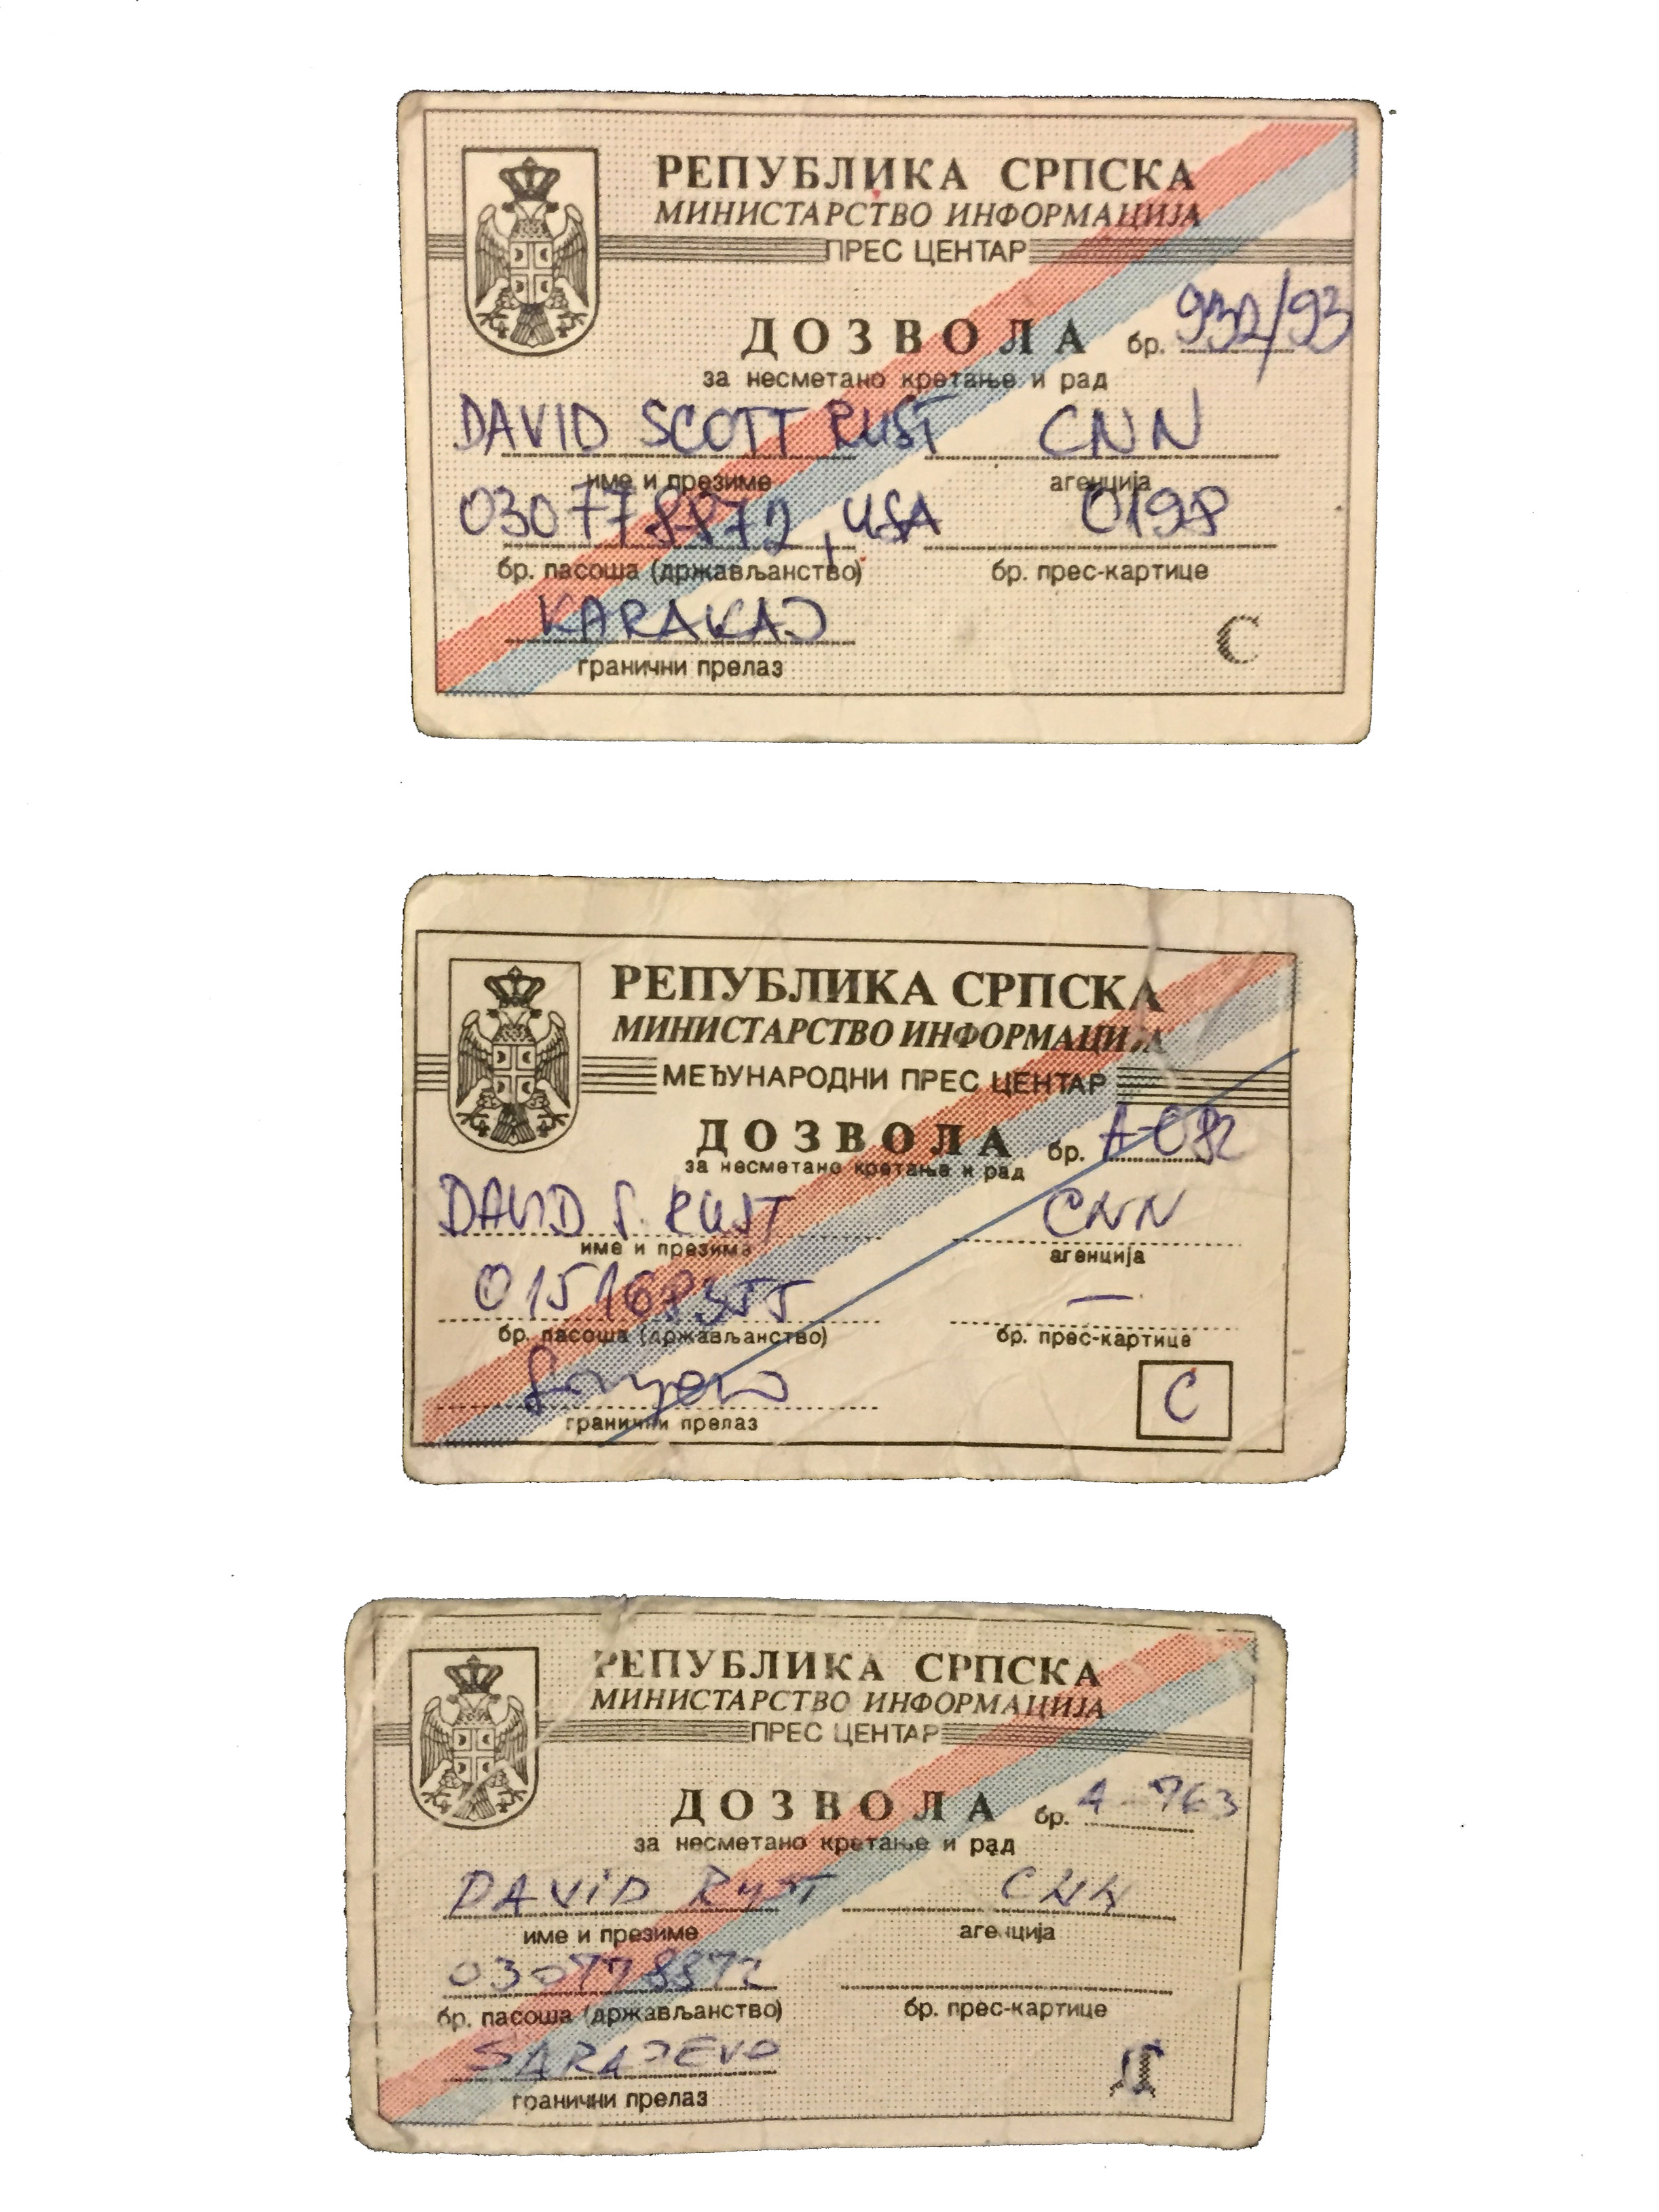 РЕПУБЛИКА СРПСКА
МИНИСТАРСТВО ИНФОРМАЦИЈА
ПРЕС ЦЕНТАР
ДОЗВОЛА бр. 932/93
за несметано кретање и рад
DAVID SCOTT RUST CNN
име и презиме агенција
030778872, USA 0198
бр. пасоша (држављанство) бр. прес-картице
KARAKAJ
гранични прелаз C
РЕПУБЛИКА СРПСКА
МИНИСТАРСТВО ИНФОРМАЦИЈА
МЕЂУНАРОДНИ ПРЕС ЦЕНТАР
ДОЗВОЛА бр. A-082
за несметано кретање и рад
DAVID S. RUST CNN
име и презиме агенција
015168355 —
бр. пасоша (држављанство) бр. прес-картице
C
гранични прелаз
РЕПУБЛИКА СРПСКА
МИНИСТАРСТВО ИНФОРМАЦИЈА
ПРЕС ЦЕНТАР
ДОЗВОЛА бр. A-763
за несметано кретање и рад
DAVID RUST CNN
име и презиме агенција
030778872
бр. пасоша (држављанство) бр. прес-картице
SARAJEVO
гранични прелаз